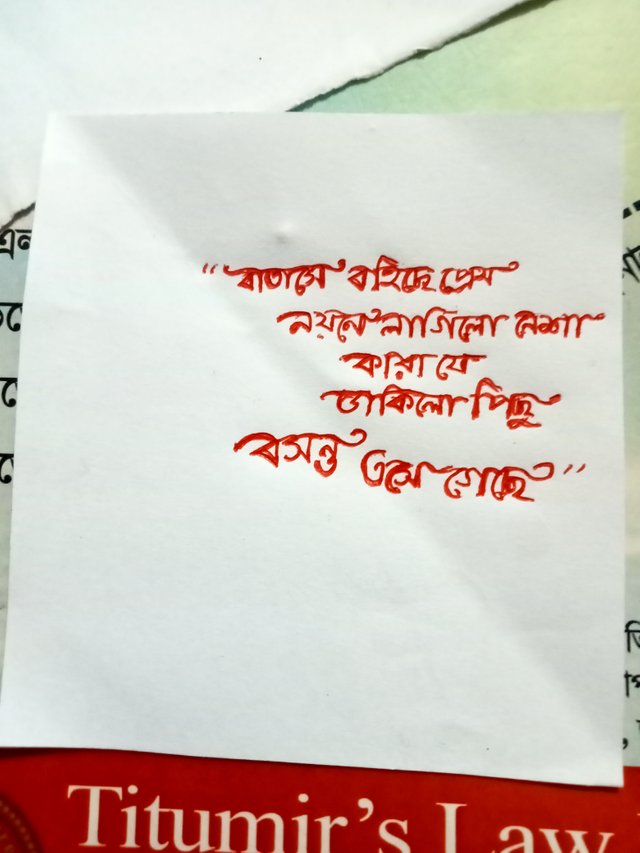 “বাতাসে বহিছে প্রেম
নয়নে লাগিলো নেশা
কারা যে
ডাকিলো পিছু
বসন্ত এসে গেছে”
Titumir's Law